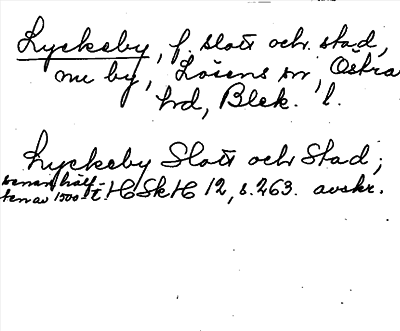 Lyckeby, f. slott och. stad,
nu by, Lösens sn, Östra
hd, Blek. l.
Lyckeby Slott och Stad;
senare hälf-
ten av 1500-t. HSH 12, s. 263. avskr.